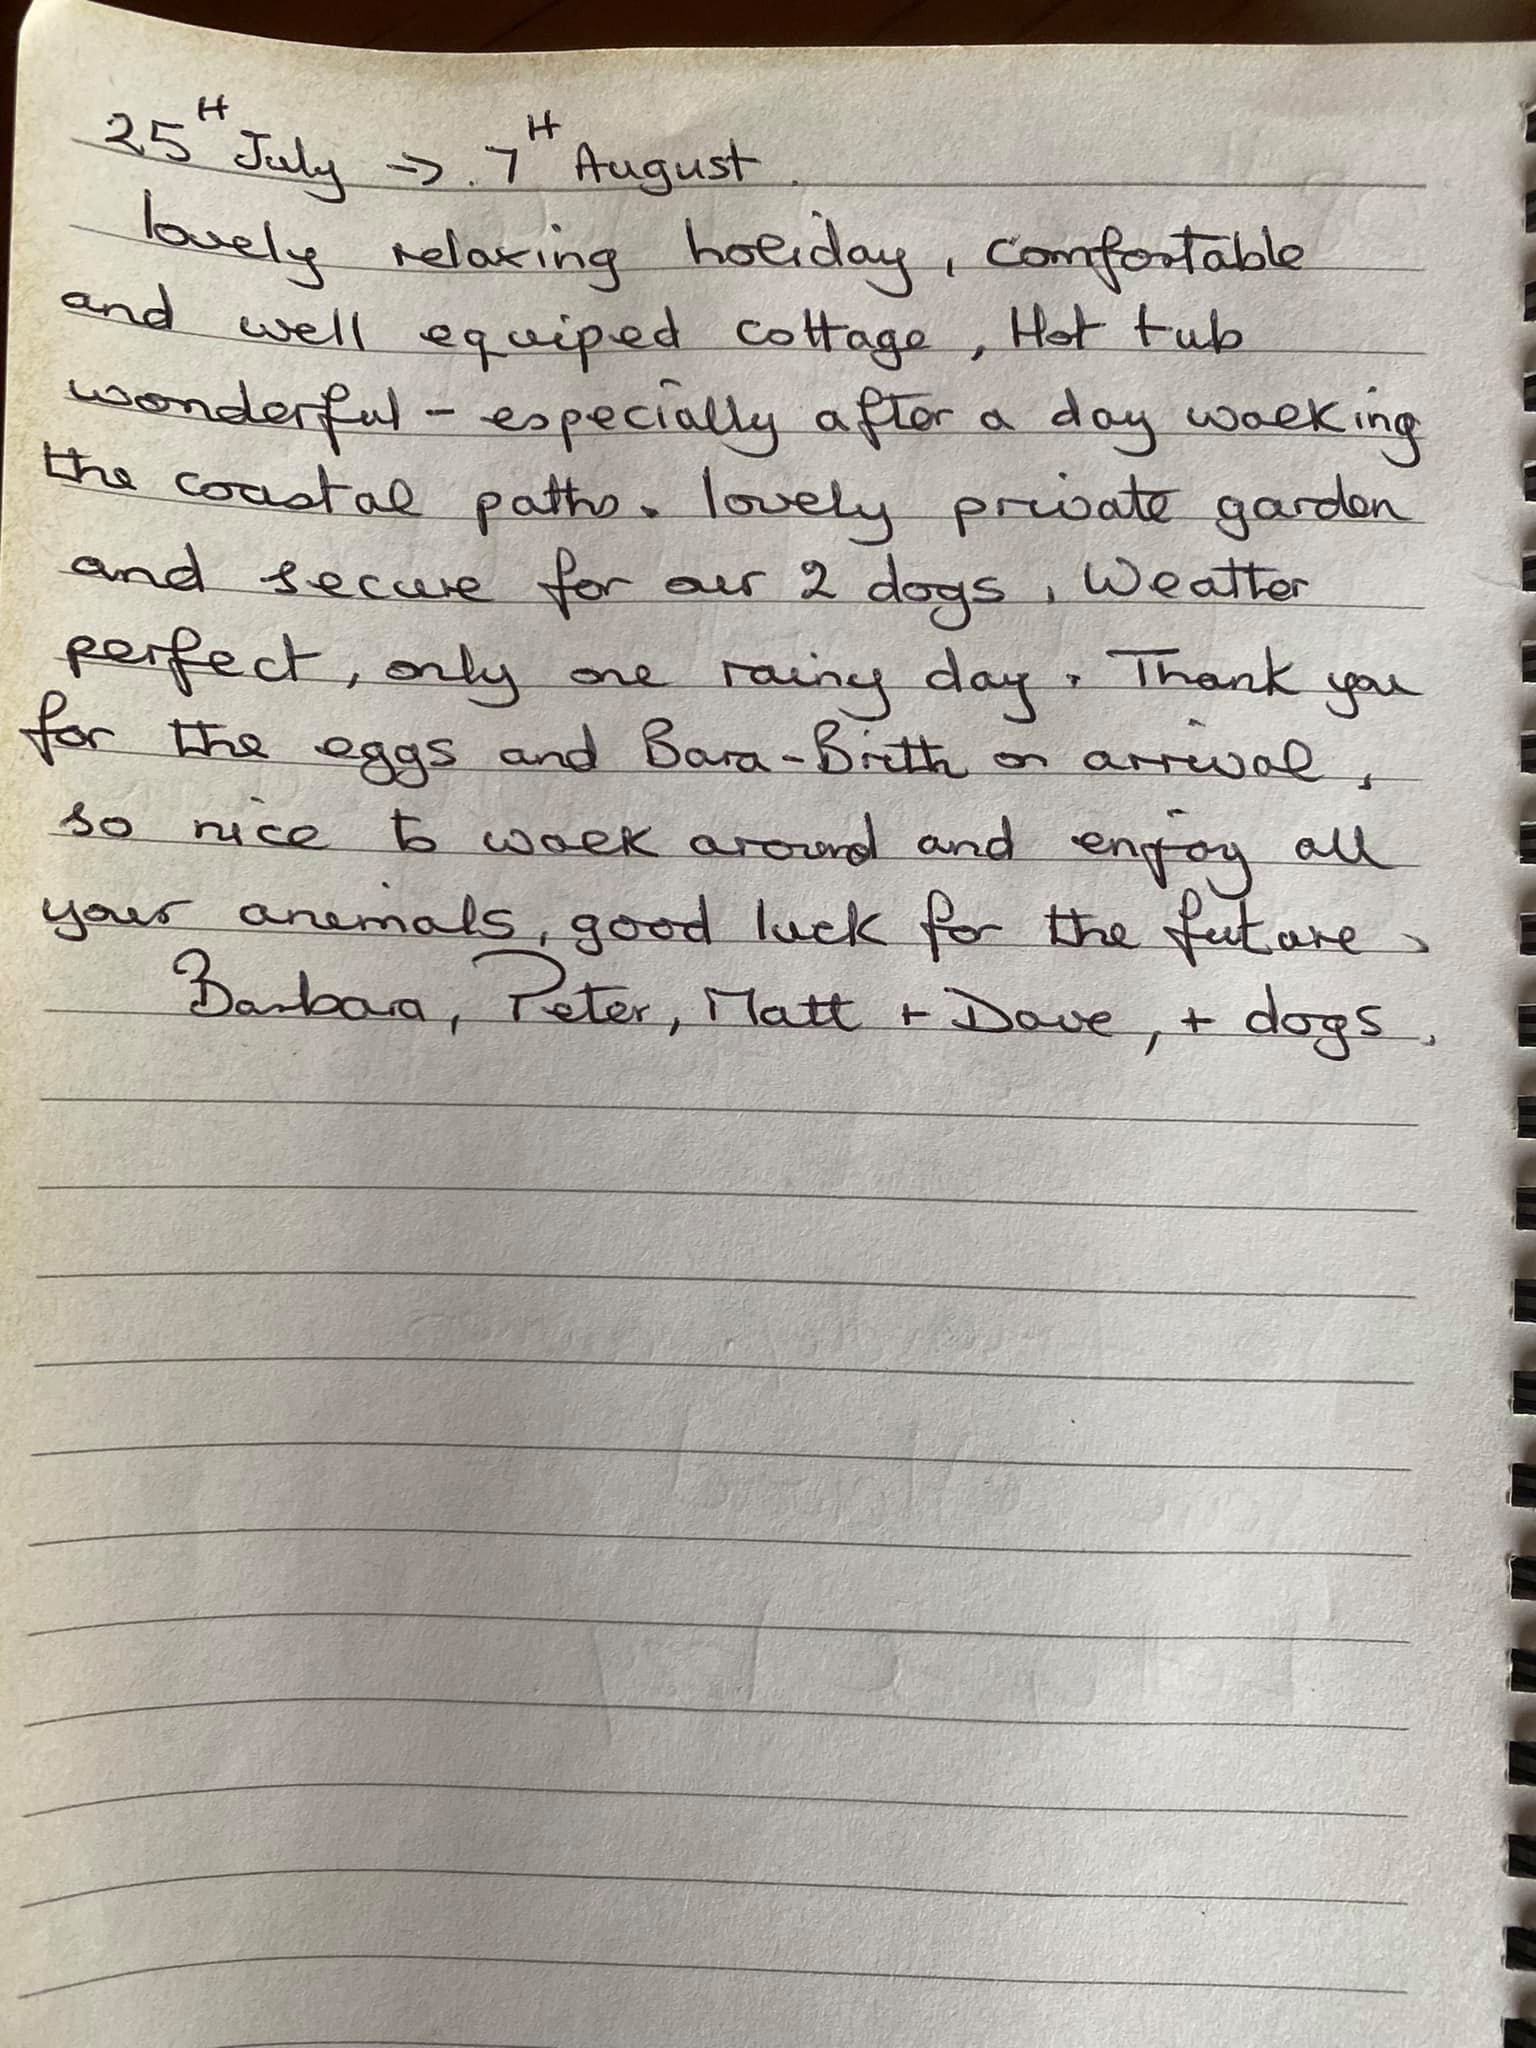 25th July → 7th August.
lovely relaxing holiday, comfortable
and well equiped cottage, Hot tub
wonderful - especially after a day walking
the coastal paths. lovely private garden
and secure for our 2 dogs, Weather
perfect, only one rainy day. Thank you
for the eggs and Bara-Brith on arrival,
so nice to walk around and enjoy all
your animals, good luck for the future,
Barbara, Peter, Matt + Dave, + dogs.